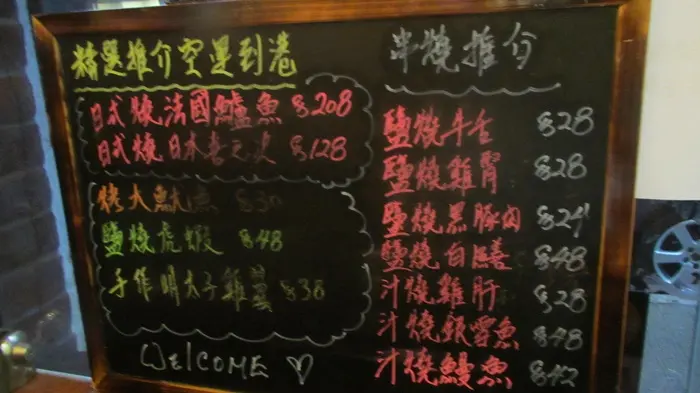 精選推介空運到港
日式燒法國鱸魚 $208
日式燒日本喜之次 $128
烤大魷魚 $30
鹽燒虎蝦 $48
手作明太子雞翼 $38
WELCOME ♡
串燒推介
鹽燒牛舌 $28
鹽燒雞腎 $28
鹽燒黑豚肉 $24
鹽燒白鱔 $48
汁燒雞肝 $28
汁燒銀雪魚 $48
汁燒鰻魚 $42